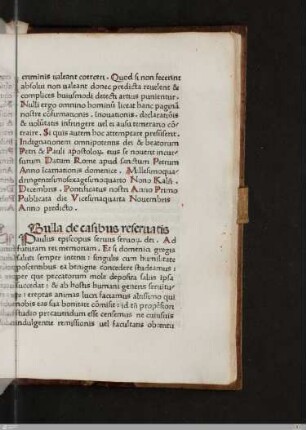 criminis valeant corrceri. Quod si non fecerint
absolui non valeant donec predicta reuelent &
complices huiusmodi detecti actius puniantur.
Nulli ergo omnino hominū liceat hanc paginā
nostre cōfirmationis. Inouationis. declaratiōis
& uolūtatis infringere uel ei ausu temerario cō
traire. Si quis autem hoc attemptare presūserit.
Indignationem omnipotentis dei & beatorum
Petri & Pauli apostoloꝝ. eius se nouerit incur
surum Datum Rome apud sanctum Petrum
Anno Incarnationis dominice. Millesimoqua
dringentesimosexagesimoquarto Nono Kalēn
Decembris. Pontificatus nostri Anno Primo
Publicata die Vicesimaquarta Nouembris
Anno predicto.
Bulla de casibus reseruatis
Paulus episcopus seruus seruoꝝ dei. Ad
futuram rei memoriam. Et si dominici gregis
saluti semper intenti: singulis cum humilitate
poscentibus ea benigne concedere studeamus:
per que peccatorum mole deposita salus ipsa
succedat: & ab hostis humani generis seruitu
te: ereptas animas lucrifaciamus altissimo qui
nobis eas sua bonitate cōmisit: id tn̄ propēsiori
studio precauendum esse censemus ne cuiusuis
indulgentie remissionis uel facultatis obtentu